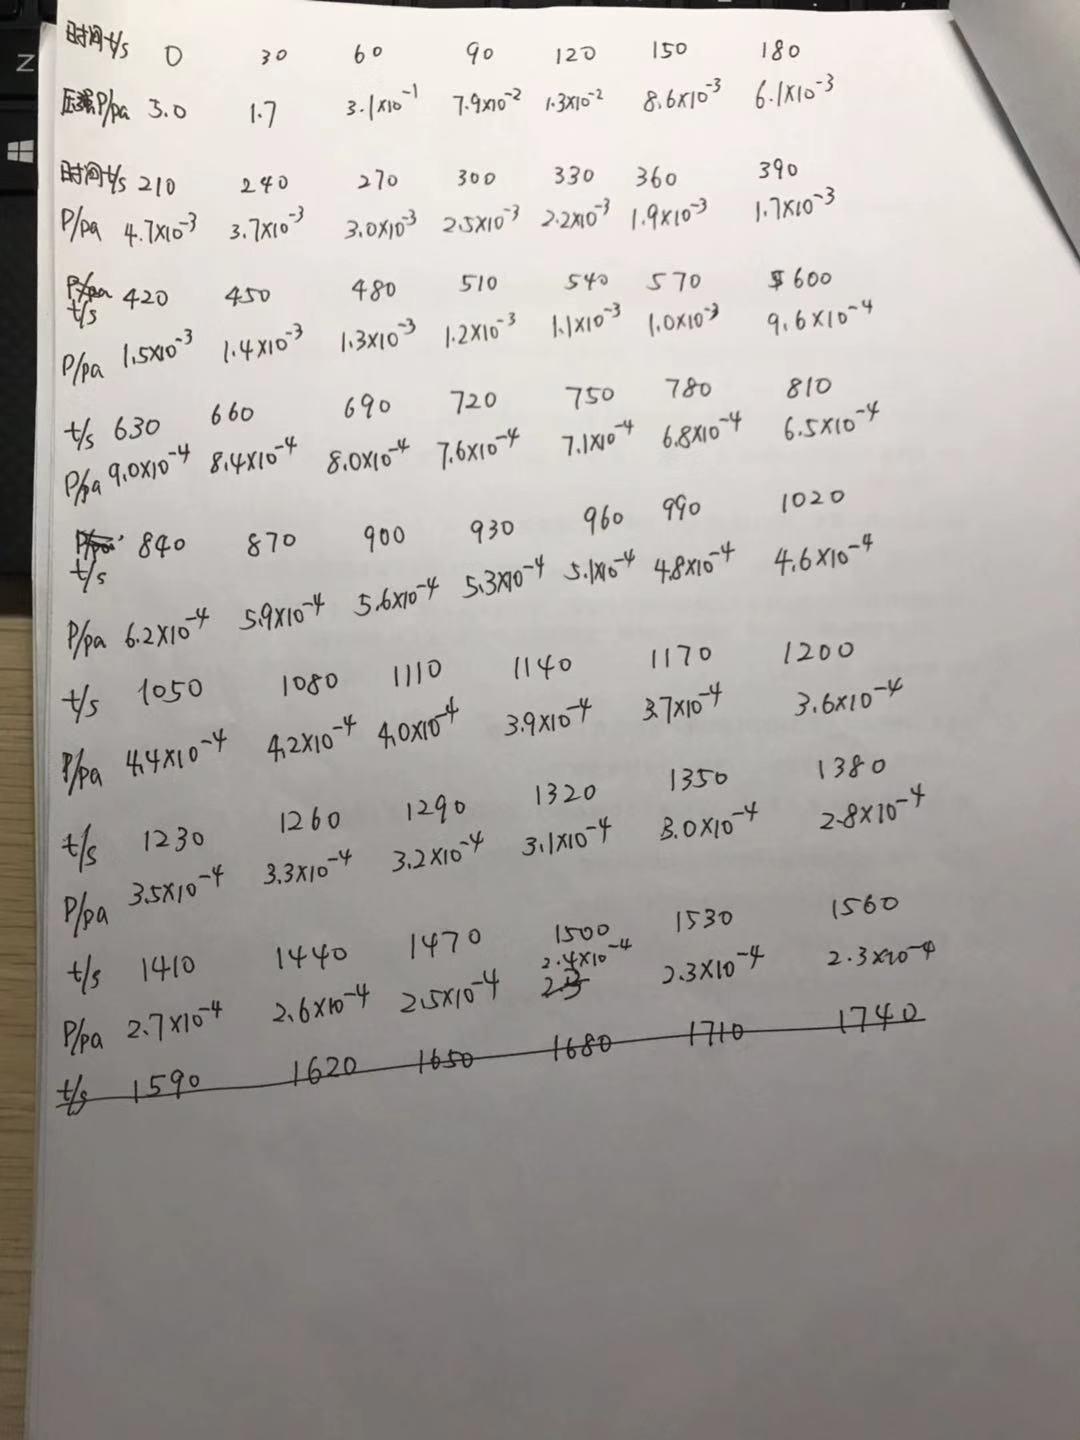 时间t/s 0 30 60 90 120 150 180
压强P/pa 3.0 1.7 3.1×10⁻¹ 7.9×10⁻² 1.3×10⁻² 8.6×10⁻³ 6.1×10⁻³
时间t/s 210 240 270 300 330 360 390
P/pa 4.7×10⁻³ 3.7×10⁻³ 3.0×10⁻³ 2.5×10⁻³ 2.2×10⁻³ 1.9×10⁻³ 1.7×10⁻³
t/s 420 450 480 510 540 570 600
P/pa 1.5×10⁻³ 1.4×10⁻³ 1.3×10⁻³ 1.2×10⁻³ 1.1×10⁻³ 1.0×10⁻³ 9.6×10⁻⁴
t/s 630 660 690 720 750 780 810
P/pa 9.0×10⁻⁴ 8.4×10⁻⁴ 8.0×10⁻⁴ 7.6×10⁻⁴ 7.1×10⁻⁴ 6.8×10⁻⁴ 6.5×10⁻⁴
t/s 840 870 900 930 960 990 1020
P/pa 6.2×10⁻⁴ 5.9×10⁻⁴ 5.6×10⁻⁴ 5.3×10⁻⁴ 5.1×10⁻⁴ 4.8×10⁻⁴ 4.6×10⁻⁴
t/s 1050 1080 1110 1140 1170 1200
P/pa 4.4×10⁻⁴ 4.2×10⁻⁴ 4.0×10⁻⁴ 3.9×10⁻⁴ 3.7×10⁻⁴ 3.6×10⁻⁴
t/s 1230 1260 1290 1320 1350 1380
P/pa 3.5×10⁻⁴ 3.3×10⁻⁴ 3.2×10⁻⁴ 3.1×10⁻⁴ 3.0×10⁻⁴ 2.8×10⁻⁴
t/s 1410 1440 1470 1500 1530 1560
P/pa 2.7×10⁻⁴ 2.6×10⁻⁴ 2.5×10⁻⁴ 2.4×10⁻⁴ 2.3×10⁻⁴ 2.3×10⁻⁴
t/s 1590 1620 1650 1680 1710 1740